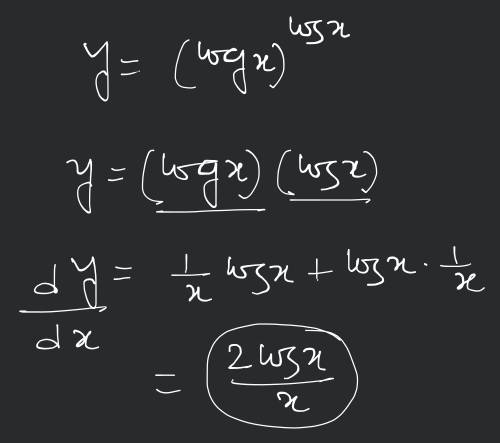 y = (logx)^logx
y = (logx) (logx)
dy/dx = 1/x logx + logx · 1/x
= 2logx/x